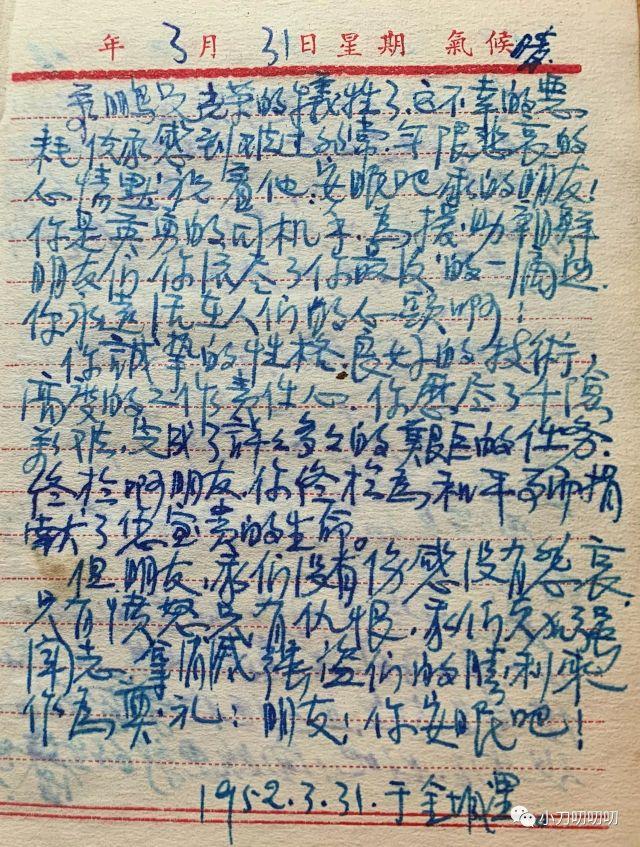 年 3月 31日 星期 氣候 暖
鵬兄光荣的犧牲了,这不幸的悪
耗,使我感到万分悲常,年限悲哀的
心情默祝着他,安眠吧,我的朋友!
你是英勇的司机手,為援助朝鮮
朋友们,你流尽了你最後的一滴血.
你永远活在人们的心頭啊!
你誠摯的性格,良好的技術,
高度的工作責任心,你歷尽了千險
万难,完成了許々多々的艱巨的任务.
終於啊朋友,你終於為和平而捐
献了您宝貴的生命。
但,朋友,我们没有伤感没有悲哀.
只有憤怒只有仇恨,我们更加強
闘志,拿消滅 我们的勝利来
作為奠礼:朋友!你安眠吧!
1952.3.31.于金城里
小刀叨叨叨